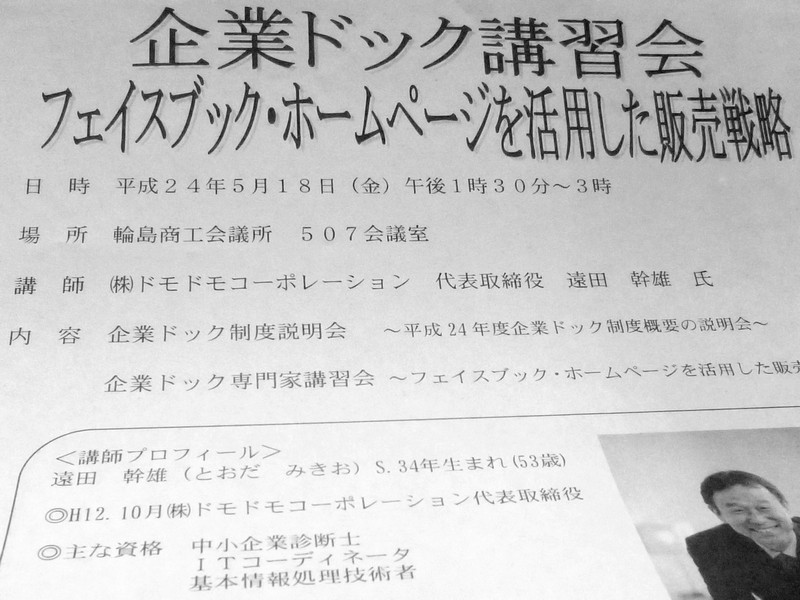 企業ドック講習会
フェイスブック・ホームページを活用した販売戦略
日　時　平成２４年５月１８日（金）午後１時３０分～３時
場　所　輪島商工会議所　５０７会議室
講　師　㈱ドモドモコーポレーション　代表取締役　遠田　幹雄　氏
内　容　企業ドック制度説明会　～平成24年度企業ドック制度概要の説明会～
企業ドック専門家講習会　～フェイスブック・ホームページを活用した販売
＜講師プロフィール＞
遠田　幹雄（とおだ　みきお）S.34年生まれ(53歳)
◎H12.10月㈱ドモドモコーポレーション代表取締役
◎主な資格　中小企業診断士
ＩＴコーディネータ
基本情報処理技術者